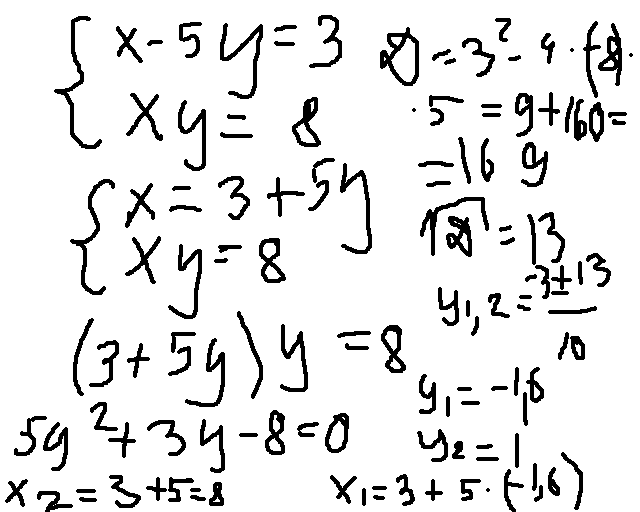 x-5y=3
xy=8
x=3+5y
xy=8
(3+5y)y=8
5y²+3y-8=0
x2=3+5=8
D=3²-4·(-8)·
·5=9+160=
=169
√D=13
y1,2=-3±13/10
y1=-1,6
y2=1
x1=3+5·(-1,6)